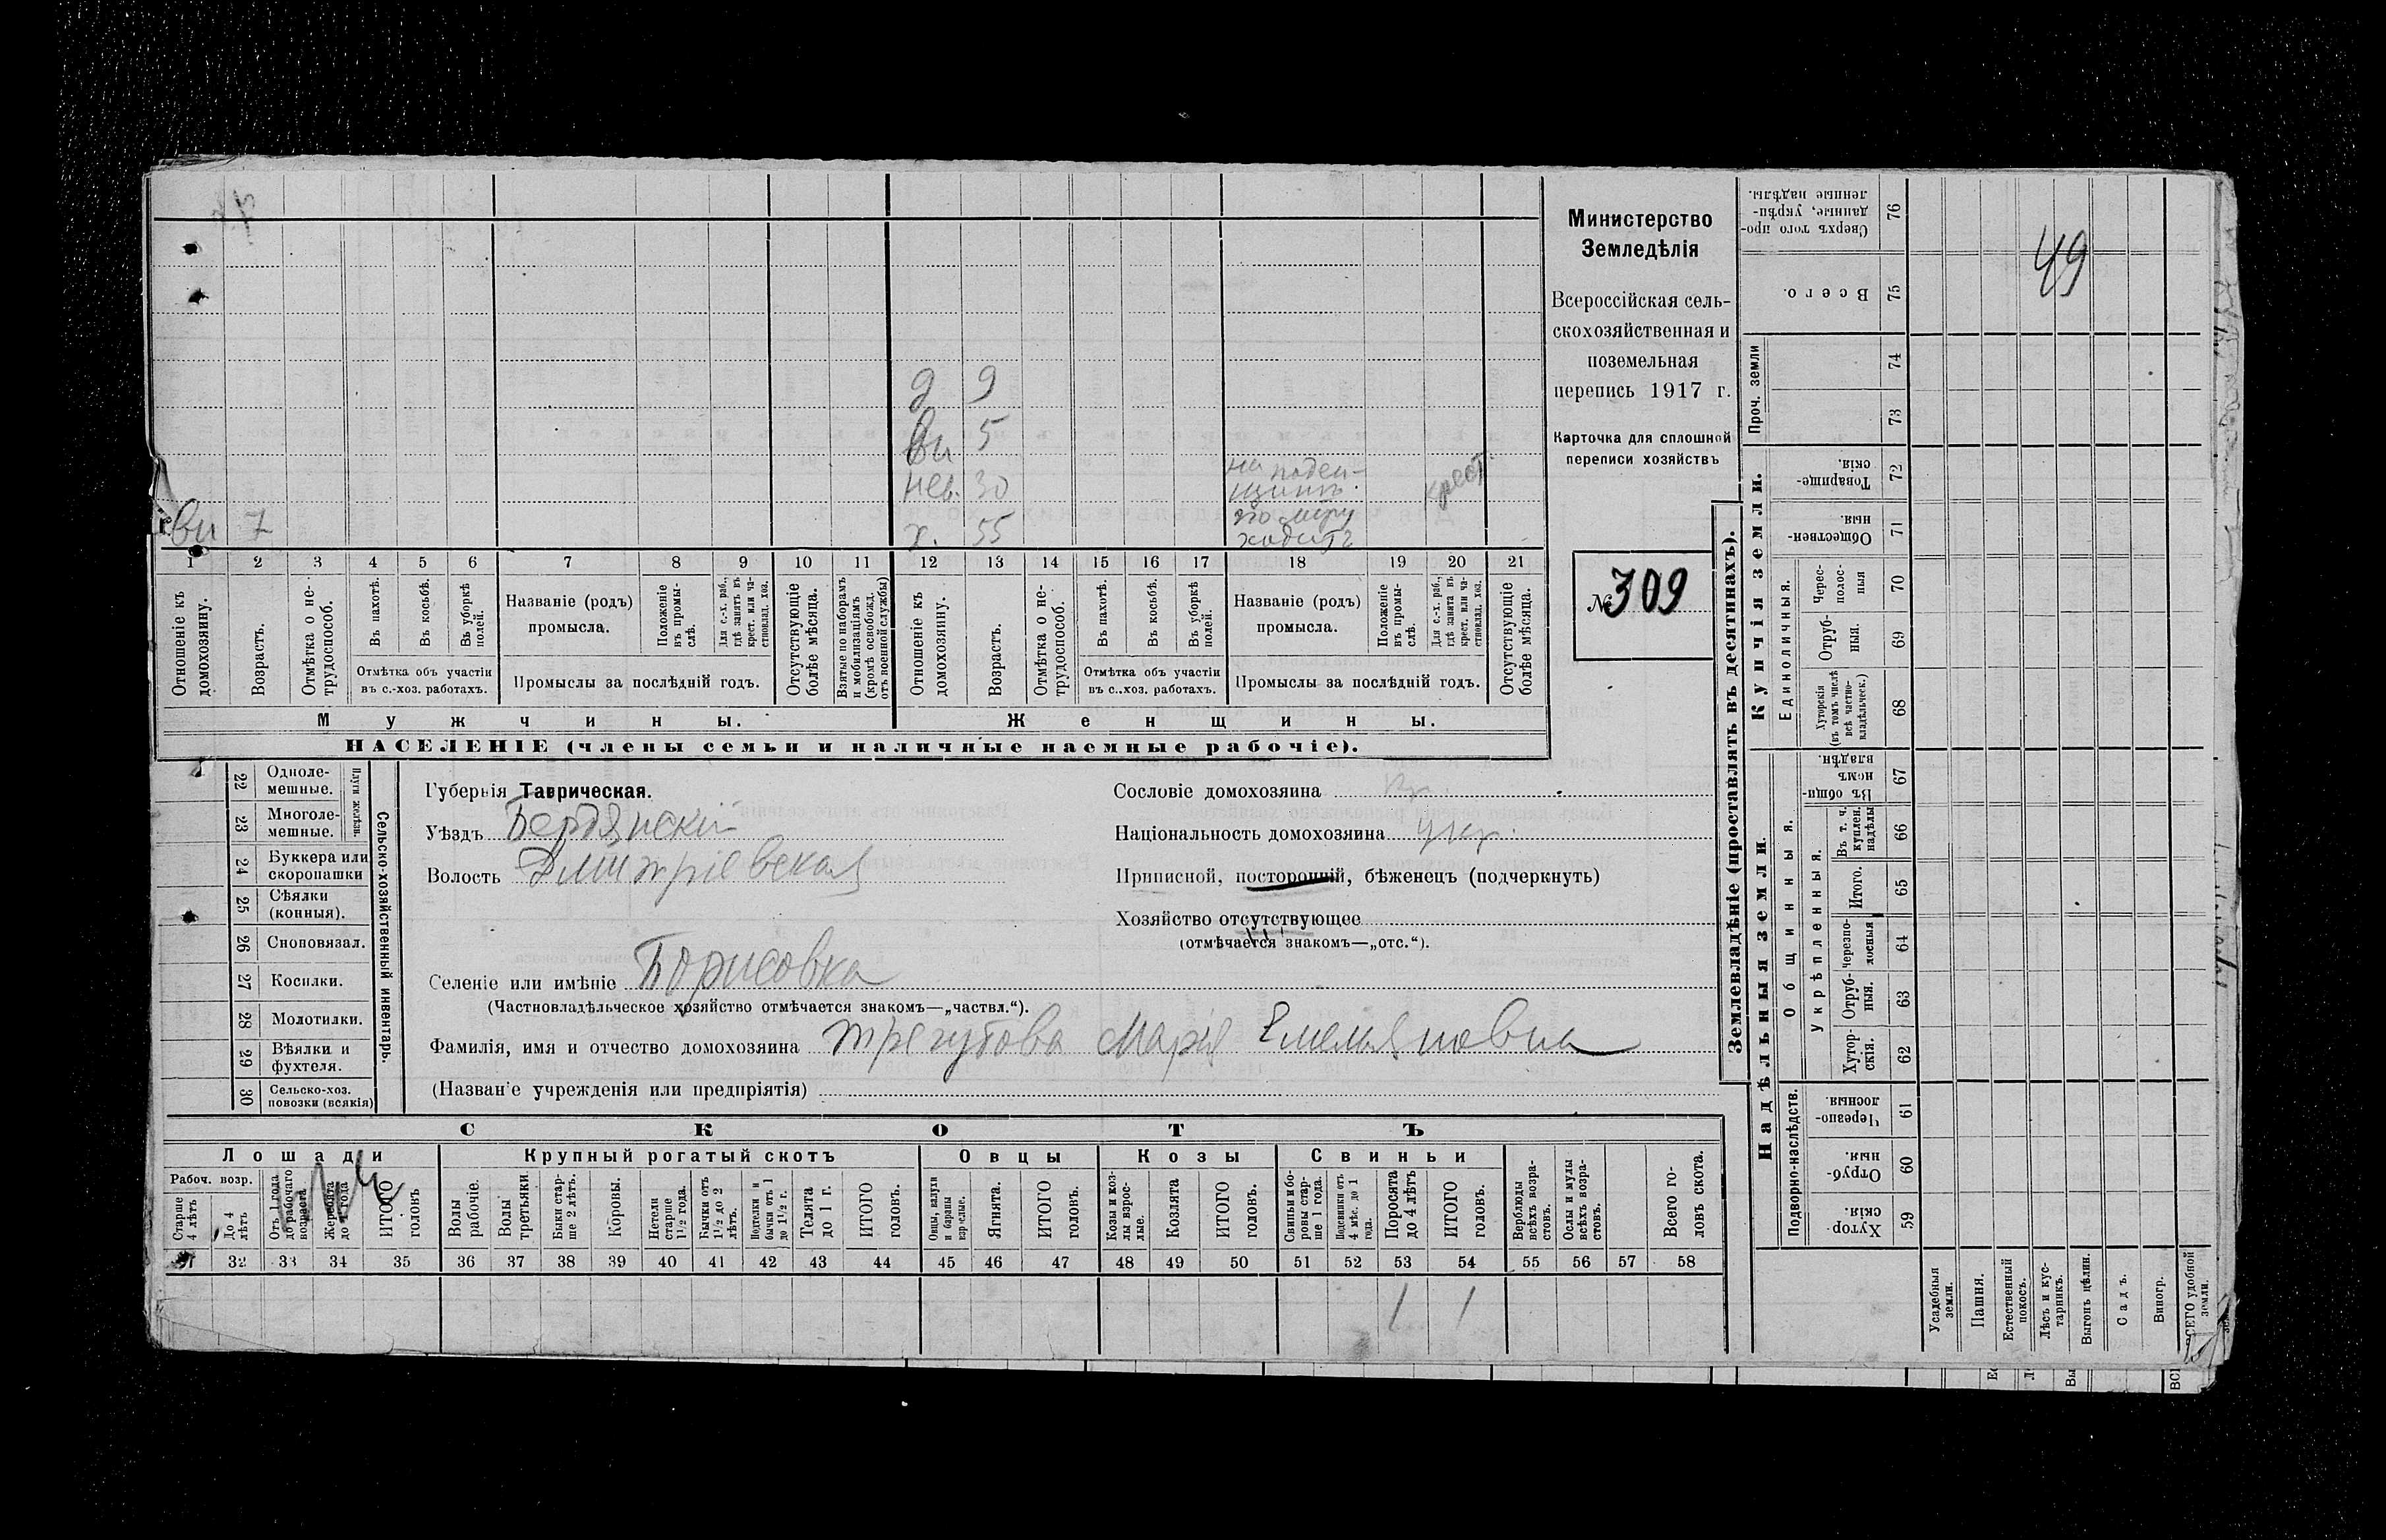 Министерство
Земледѣлія
Всероссійская сель-
скохозяйственная и
поземельная
перепись 1917 г.
Карточка для сплошной
переписи хозяйствъ
№ 309
д 9
вн 5
нев. 30 на поден- крест
щинѣ
вн 7
х. 55 по миру
ходитъ
1 2 3 4 5 6 7 8 9 10 11 12 13 14 15 16 17 18 19 20 21
Отношеніе къ домохозяину.
Возрастъ.
Отмѣтка о не-трудоспособ.
Въ пахотѣ.
Въ косьбѣ.
Въ уборкѣ полей.
Отмѣтка объ участіи
въ с.-хоз. работахъ.
Названіе (родъ)
промысла.
Положеніе въ промы-слѣ.
Для с.-х. раб., гдѣ занятъ въ крест. или ча-стновлад. хоз.
Промыслы за послѣдній годъ.
Отсутствующіе болѣе мѣсяца.
Взятые по наборамъ и мобилизаціямъ (кромѣ освобожд. отъ военной службы)
Отношеніе къ домохозяину.
Возрастъ.
Отмѣтка о не-трудоспособ.
Въ пахотѣ.
Въ косьбѣ.
Въ уборкѣ полей.
Отмѣтка объ участіи
въ с..хоз. работахъ.
Названіе (родъ)
промысла.
Положеніе въ промы-слѣ.
Для с.-х. раб., гдѣ занята въ крест. или ча-стновлад. хоз.
Промыслы за послѣдній годъ.
Отсутствующіе болѣе мѣсяца.
Мужчины. Женщины.
НАСЕЛЕНІЕ (члены семьи и наличные наемные рабочіе).
22 Одноле-мешные.
23 Многоле-мешные.
Плуги желѣзн.
24 Буккера или скоропашки
25 Сѣялки (конныя).
26 Сноповязал.
27 Косилки.
28 Молотилки.
29 Вѣялки и фухтеля.
30 Сельско-хоз. повозки (всякія)
Сельско-хозяйственный инвентарь.
Губернія Таврическая.
Уѣздъ Бердянскій
Волость Дмитріевская
Селеніе или имѣніе Борисовка
(Частновладѣльческое хозяйство отмѣчается знакомъ—„частвл.“).
Фамилія, имя и отчество домохозяина Трегубова Марія Емельяновна
(Назван'е учрежденія или предпріятія)
Сословіе домохозяина кр.
Національность домохозяина укр.
Приписной, посторонній, бѣженецъ (подчеркнуть)
Хозяйство отсутствующее
(отмѣчается знакомъ—„отс.“).
СКОТЪ
Лошади Крупный рогатый скотъ Овцы Козы Свиньи
Рабоч. возр.
Старше 4 лѣтъ
До 4 лѣтъ
Отъ 1 года до рабочаго возраста
Жеребята до 1 года
ИТОГО головъ
Волы рабочіе.
Волы третьяки.
Быки стар-ше 2 лѣтъ.
Коровы.
Нетели старше 1½ года.
Бычки отъ 1½ до 2 лѣтъ.
Подтелки и бычки отъ 1 до 1½ г.
Телята до 1 г.
ИТОГО головъ.
Овцы, валухи и бараны взрослые.
Ягнята.
ИТОГО головъ.
Козы и коз-лы взрос-лые.
Козлята
ИТОГО головъ.
Свиньи и бо-ровы стар-ше 1 года.
Подсвинки отъ 4 мѣс. до 1 года.
Поросята до 4 лѣтъ
ИТОГО головъ.
Верблюды всѣхъ возра-стовъ.
Ослы и мулы всѣхъ возра-стовъ.
Всего го-ловъ скота.
31 32 33 34 35 36 37 38 39 40 41 42 43 44 45 46 47 48 49 50 51 52 53 54 55 56 57 58
1 1
Землевладѣніе (проставлять въ десятинахъ).
Надѣльныя земли. Купчія земли.
Подворно-наслѣдств.
Общинныя.
Укрѣпленныя.
Единоличныя.
Проч. земли
Хутор-скія. 59
Отруб-ныя. 60
Черезпо-лосныя. 61
Хутор-скія. 62
Отруб-ныя. 63
Черезпо-лосныя 64
Итого. 65
Въ т. ч. куплен. надѣлы 66
Въ общи-номъ владѣн. 67
Хуторскія (въ томъ числѣ всѣ частно-владѣльческ.) 68
Отруб-ныя. 69
Черес-полос-ныя 70
Обществен-ныя. 71
Товарище-скія. 72
73
74
Всего. 75
Сверхъ того про-данные, укрѣп-ленные надѣлы. 76
49
Усадебныя земли.
Пашня.
Естественный покосъ.
Лѣсъ и кус-тарникъ.
Выгонъ цѣлин.
Садъ.
Виногр.
ВСЕГО удобной земли.